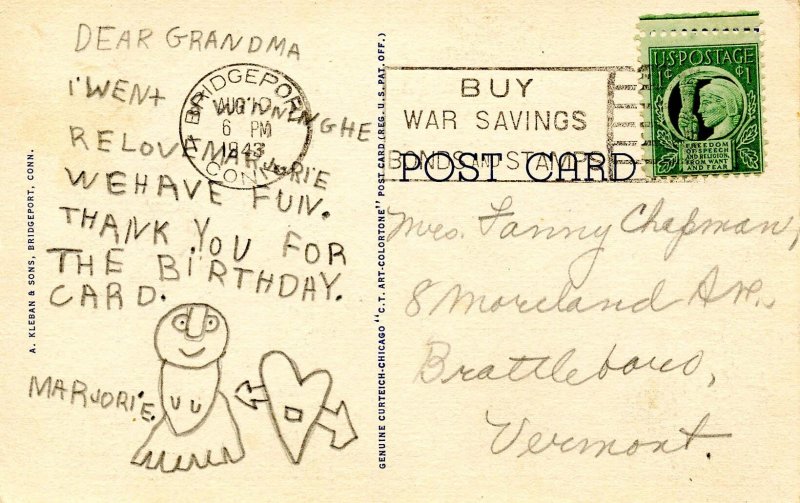 DEAR GRANDMA
I WENT
RELOVE MARJORIE
WE HAVE FUN.
THANK YOU FOR
THE BIRTHDAY.
CARD.
MARJORIE.
A. KLEBAN & SONS, BRIDGEPORT, CONN.
GENUINE CURTEICH-CHICAGO "C.T. ART-COLORTONE" POST CARD (REG. U.S. PAT. OFF.)
BRIDGEPORT
AUG 10
6 PM
1943
CONN.
BUY
WAR SAVINGS
BONDS AND STAMPS
POST CARD
U.S. POSTAGE
1¢ ¢1
FREEDOM
OF SPEECH
AND RELIGION,
FROM WANT
AND FEAR
Mrs. Fanny Chapman,
8 Moreland Ave.,
Brattleboro,
Vermont.